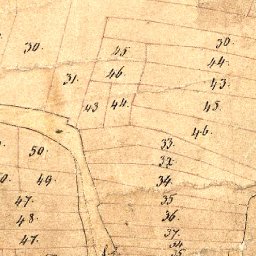 30.
30.
45.
44.
46.
31.
43.
43
44.
45.
46.
33.
50.
32.
49.
34.
47.
35
48.
36.
37.
47.
34.
35.